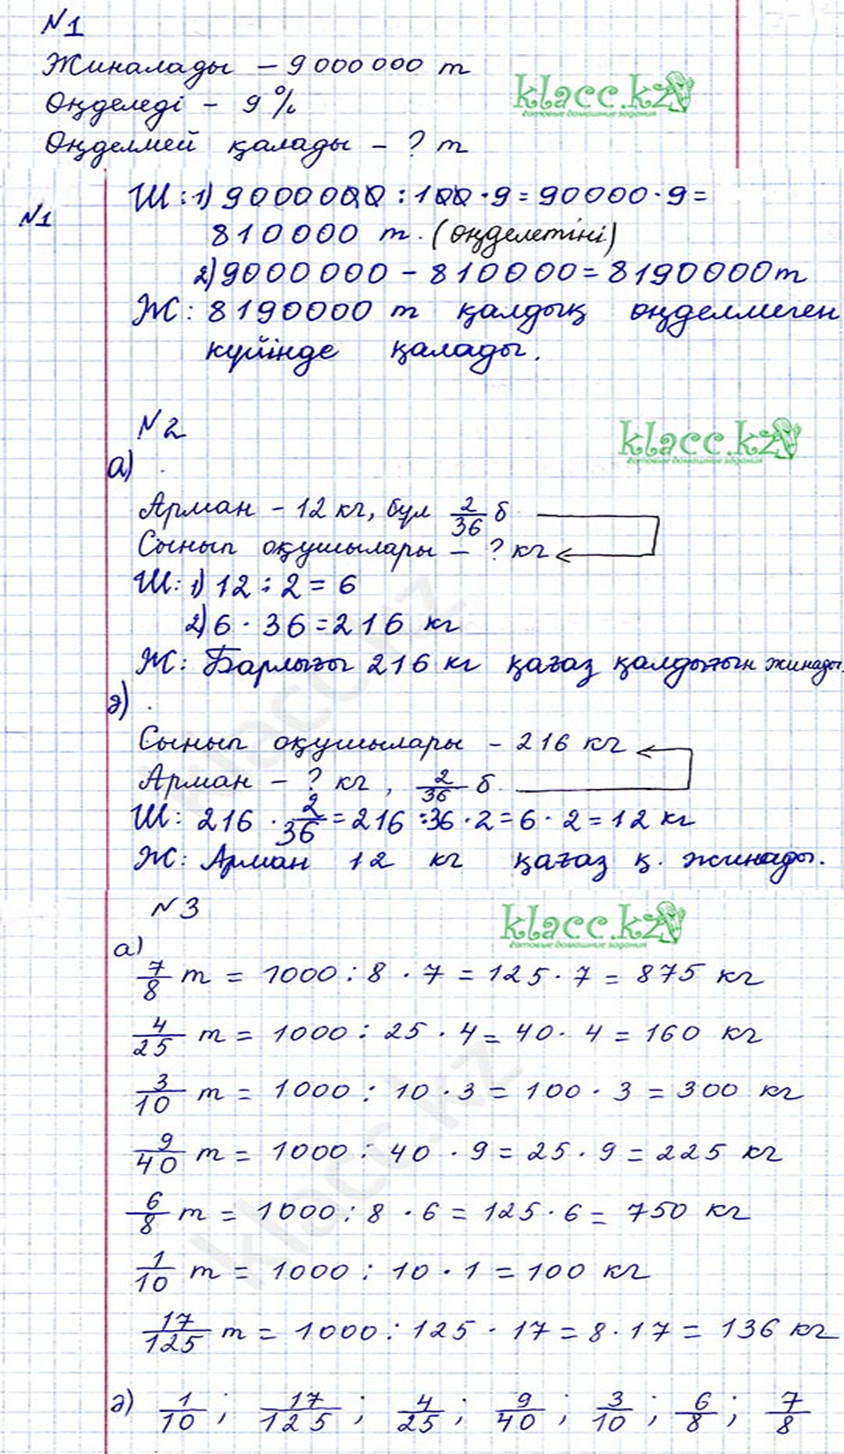 №1
Жиналады – 9 000 000 т
klacc.kz
готовые домашние задания
Өңделеді – 9 %
Өңделмей қалады – ? т
№1
Ш: 1) 9000000 : 100 · 9 = 90000 · 9 =
810000 т. (өңделетіні)
2) 9000 000 – 810000 = 8190000 т
Ж: 8190000 т қалдық өңделмеген
күйінде қалады.
№2
klacc.kz
готовые домашние задания
а)
Арман – 12 кг, бұл 2/36 б
Сынып оқушылары – ? кг
Ш: 1) 12 : 2 = 6
2) 6 · 36 = 216 кг
Ж: Барлығы 216 кг қағаз қалдығын жинады.
ә)
Сынып оқушылары – 216 кг
Арман – ? кг , 2/36 б
Ш: 216 · 2/36 = 216 : 36 · 2 = 6 · 2 = 12 кг
Ж: Арман 12 кг қағаз қ. жинады.
№3
klacc.kz
готовые домашние задания
а)
7/8 т = 1000 : 8 · 7 = 125 · 7 = 875 кг
4/25 т = 1000 : 25 · 4 = 40 · 4 = 160 кг
3/10 т = 1000 : 10 · 3 = 100 · 3 = 300 кг
9/40 т = 1000 : 40 · 9 = 25 · 9 = 225 кг
6/8 т = 1000 : 8 · 6 = 125 · 6 = 750 кг
1/10 т = 1000 : 10 · 1 = 100 кг
17/125 т = 1000 : 125 · 17 = 8 · 17 = 136 кг
ә) 1/10 ; 17/125 ; 4/25 ; 9/40 ; 3/10 ; 6/8 ; 7/8
klacc.kz
klacc.kz